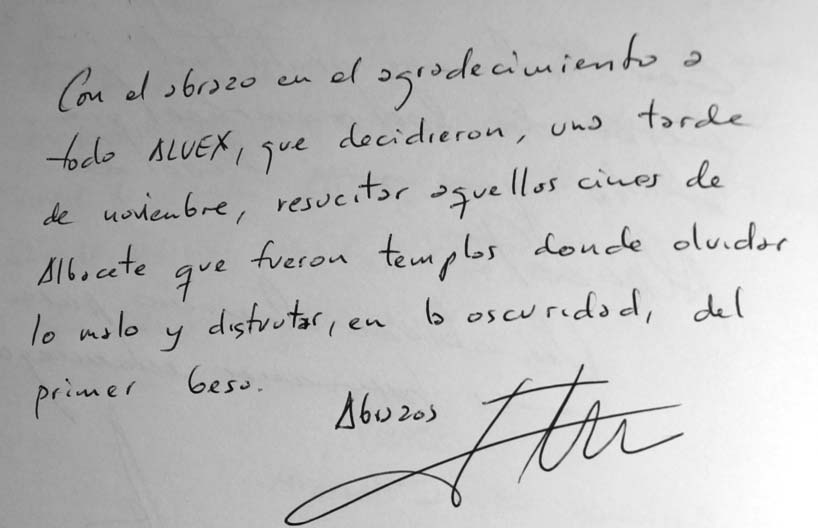 Con el abrazo en el agradecimiento a
todo ALUEX, que decidieron, una tarde
de noviembre, resucitar aquellos cines de
Albacete que fueron templos donde olvidar
lo malo y disfrutar, en la oscuridad, del
primer beso.
Abrazos